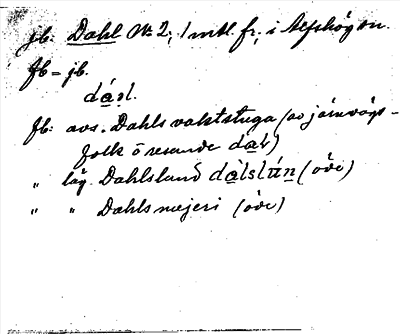 jb: Dahl No 2, 1 mtl. fr, i Alfshög sn.
Jb = jb.
dál.
Jb: avs. Dahls vaktstuga (av järnvägs-
folk o resande dal)
" låg. Dahlsland dalslún (öde)
" " Dahls mejeri (öde)